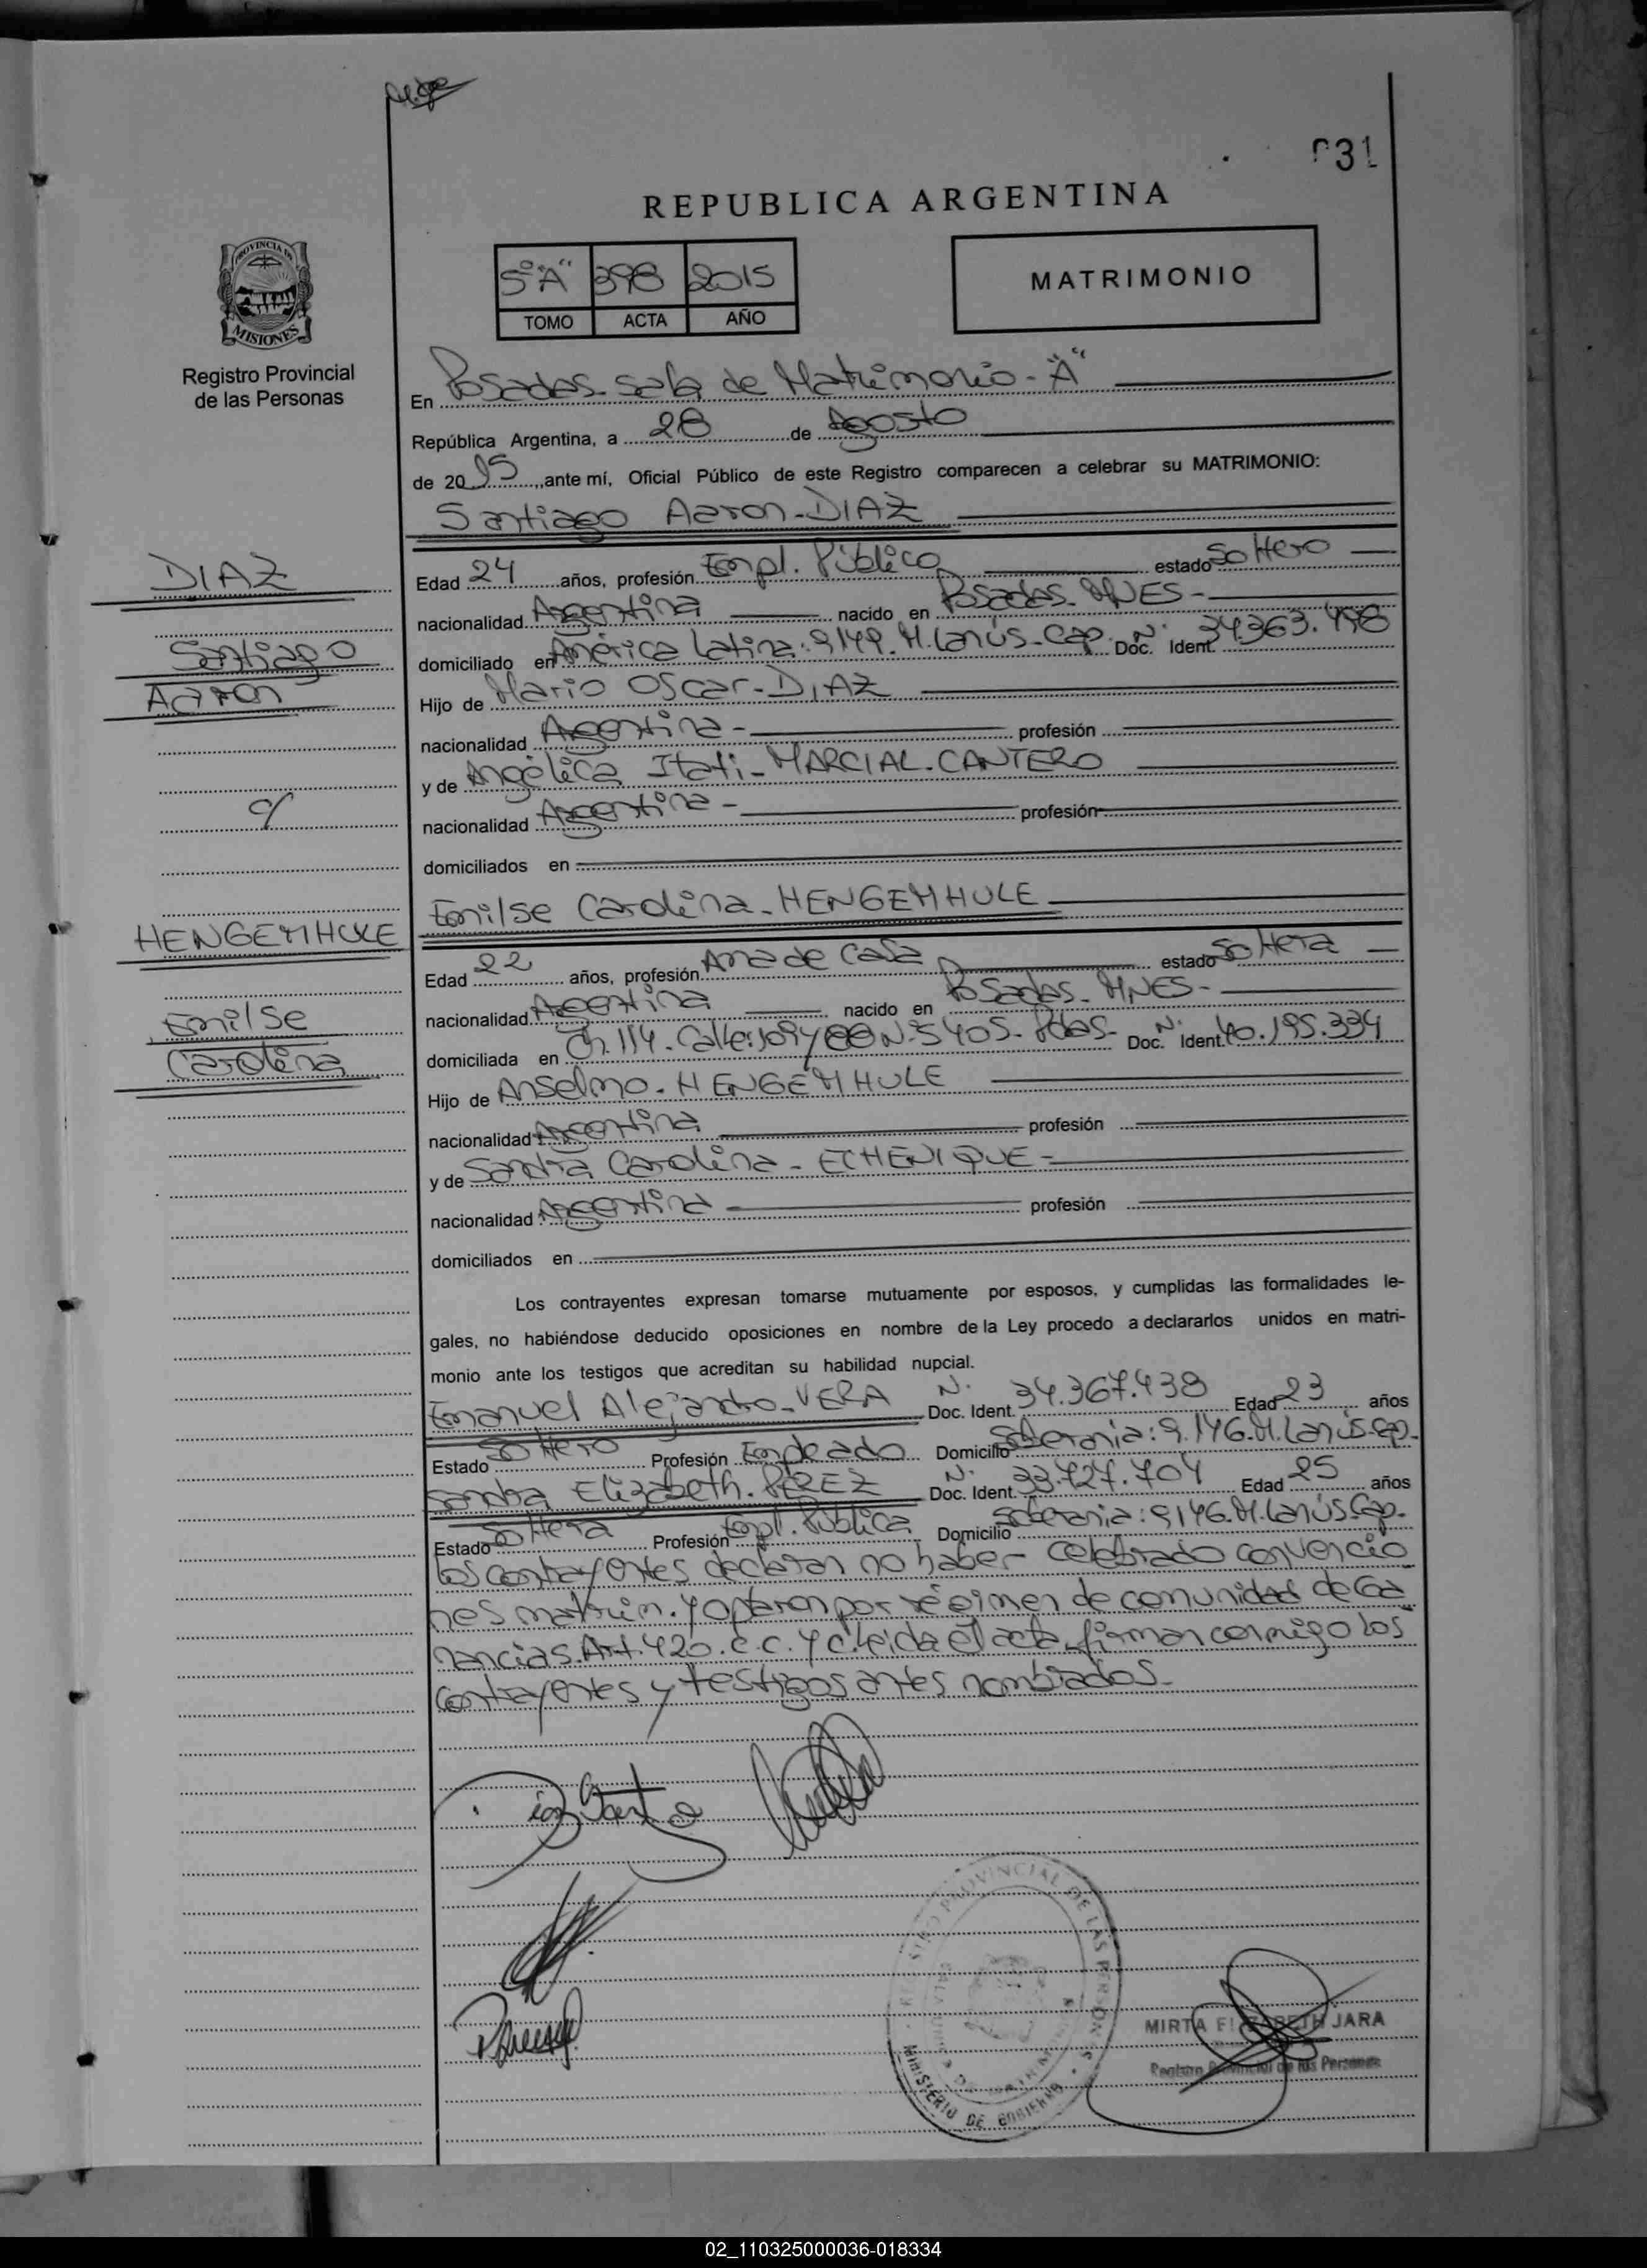 031
REPUBLICA ARGENTINA
5º"A" 398 2015
TOMO ACTA AÑO
MATRIMONIO
PROVINCIA DE
MISIONES
Registro Provincial
de las Personas
En Posadas- sala de Matrimonio- "A"
República Argentina, a 28 de Agosto
de 2015, ante mí, Oficial Público de este Registro comparecen a celebrar su MATRIMONIO:
Santiago Aaron- DIAZ
DIAZ
Santiago
Aaron
c/
HENGEMHULE
Emilse
Carolina
Edad 24 años, profesión Empl. Público estado Soltero
nacionalidad Argentina nacido en Posadas- MNES-
domiciliado en América Latina: 9149. M. Lanús- Cap. Doc. N. Ident. 34.363.498
Hijo de Mario Oscar- DIAZ
nacionalidad Argentina- profesión
y de Angélica Itati- MARCIAL. CANTERO
nacionalidad Argentina- profesión
domiciliados en
Emilse Carolina- HENGEMHULE
Edad 22 años, profesión Ama de Casa estado Soltera
nacionalidad Argentina nacido en Posadas- MNES-
domiciliada en Ch. 114. Calle: 109 y N: 5405- Pdas- Doc. N. Ident. 40.195.334
Hijo de Anselmo- HENGEMHULE
nacionalidad Argentina profesión
y de Sandra Carolina- ECHENIQUE-
nacionalidad Argentina profesión
domiciliados en
Los contrayentes expresan tomarse mutuamente por esposos, y cumplidas las formalidades le-
gales, no habiéndose deducido oposiciones en nombre de la Ley procedo a declararlos unidos en matri-
monio ante los testigos que acreditan su habilidad nupcial.
Emanuel Alejandro- VERA N. Doc. Ident. 34.367.438 Edad 23 años
Estado Soltero Profesión Empleado Domicilio Soberania: 9.146. M. Lanús. Cap.
Sandra Elizabeth. PÉREZ N. Doc. Ident. 33.727.704 Edad 25 años
Estado Soltera Profesión Empl. Pública Domicilio Soberania: 9146. M. Lanús. Cap.
Los contrayentes declaran no haber celebrado convencio
nes matrim. y optaron por régimen de comunidad de Ga
nancias. Art. 420. C.C. y C. Leída el acta, firman conmigo los
contrayentes y testigos antes nombrados-
Diaz Santiago
REGISTRO PROVINCIAL DE LAS PERSONAS
MINISTERIO DE GOBIERNO
MIRTA ELIZABETH JARA
Registro Provincial de las Personas
02_110325000036-018334